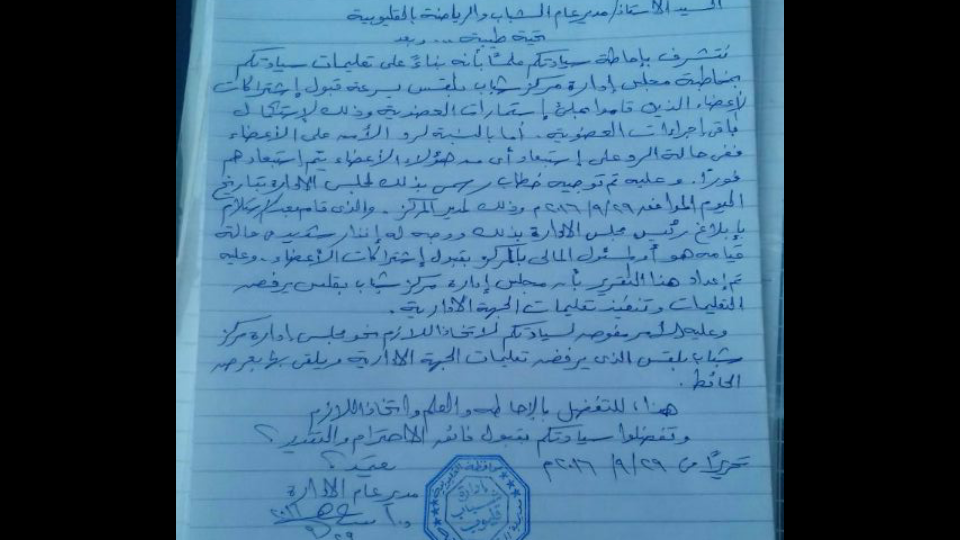 السيد الأستاذ/ مدير عام الشباب والرياضة بالقليوبية
تحية طيبة ... وبعد
نتشرف بإحاطة سيادتكم علمًا بأنه بناءً على تعليمات سيادتكم
بمخاطبة مجلس إدارة مركز شباب بلقس بسرعة قبول إشتراكات
الأعضاء الذين قاموا بملئ إستمارات العضوية وذلك لإستكمال
باقى إجراءات العضوية . أما بالنسبة لرد الأمن على الأعضاء
ففى حالة الرد على إستبعاد أى من هؤلاء الأعضاء يتم إستبعادهم
فورًا . وعليه تم توجيه خطاب رسمى بذلك لمجلس الادارة بتاريخ
اليوم الموافق ٢٠١٦/٩/٢٩م وذلك لمدير المركز . والذى قام بعد
بإبلاغ رئيس مجلس الادارة بذلك ووجه له إنذار فى حالة
قيامه هو أو المسئول المالى بالمركز بقبول إشتراكات الأعضاء . وعليه
تم إعداد هذا التقرير بأن مجلس إدارة مركز شباب بلقس يرفض
التعليمات وتنفيذ تعليمات الجهة الادارية .
وعليه الأمر مفوض لسيادتكم لاتخاذ اللازم نحو مجلس إدارة مركز
شباب بلقس الذى يرفض تعليمات الجهة الادارية ويلقى بها بعرض
الحائط .
هذا للتفضل بالإحاطه والعلم واتخاذ اللازم
وتفضلوا سيادتكم بقبول فائق الاحترام والتقدير
تحريرًا فى ٢٠١٦/٩/٢٩م
مدير عام الادارة
إدارة
شباب
قليوب